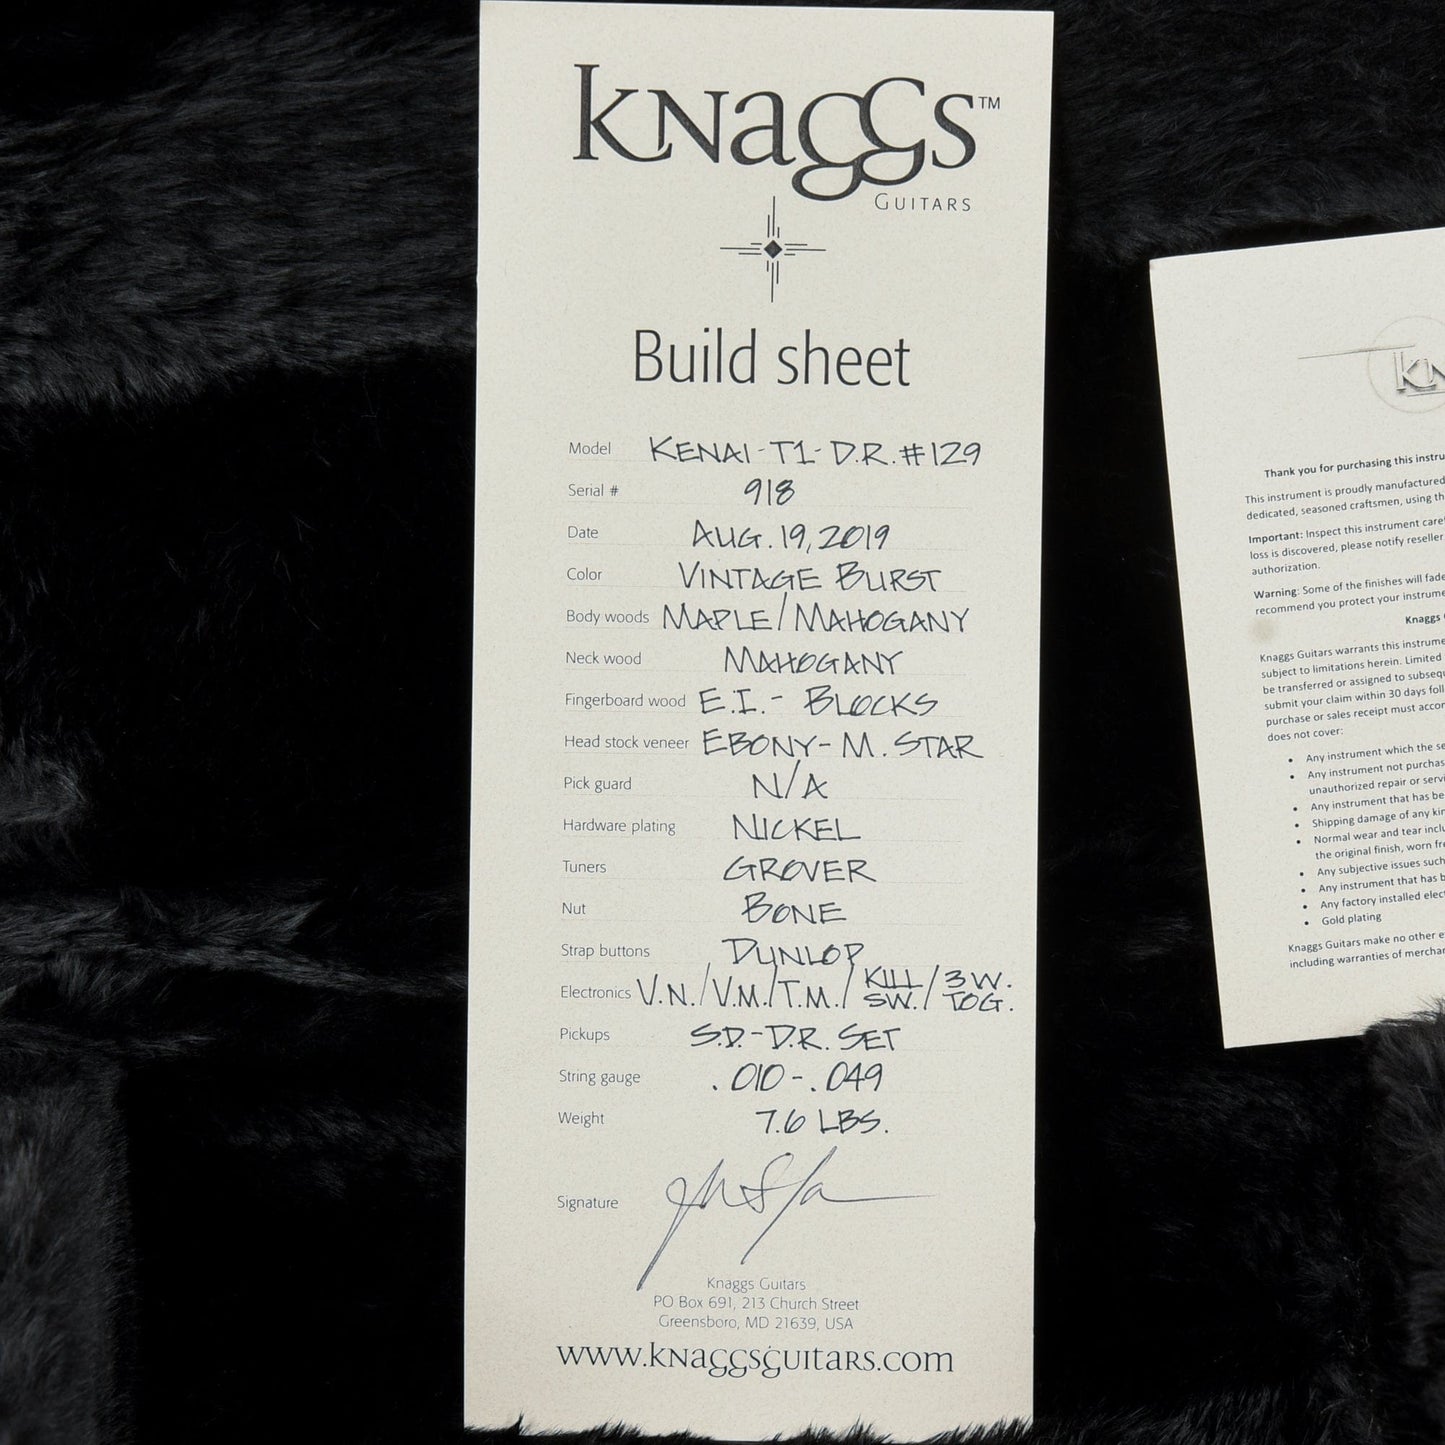 KNAGGS™
GUITARS
Build sheet
Model KENAI-T1-D.R.#129
Serial # 918
Date AUG. 19, 2019
Color VINTAGE BURST
Body woods MAPLE/MAHOGANY
Neck wood MAHOGANY
Fingerboard wood E.I.- BLOCKS
Head stock veneer EBONY- M. STAR
Pick guard N/A
Hardware plating NICKEL
Tuners GROVER
Nut BONE
Strap buttons DUNLOP
Electronics V.N./V.M./T.M./KILL SW./3 W. TOG.
Pickups S.D.-D.R. SET
String gauge .010-.049
Weight 7.6 LBS.
Signature
Knaggs Guitars
PO Box 691, 213 Church Street
Greensboro, MD 21639, USA
www.knaggsguitars.com
Thank you for purchasing this
This instrument is proudly manufactured
dedicated, seasoned craftsmen, using
Important: Inspect this instrument
loss is discovered, please notify reseller
authorization.
Warning: Some of the finishes will
recommend you protect your
Knaggs
Knaggs Guitars warrants this
subject to limitations herein. Limited
be transferred or assigned to
submit your claim within 30 days
purchase or sales receipt must
does not cover:
• Any instrument which the
• Any instrument not
unauthorized repair or
• Any instrument that has
• Shipping damage of any
• Normal wear and tear
the original finish, worn
• Any subjective issues
• Any instrument that has
• Any factory installed
• Gold plating
Knaggs Guitars make no other
including warranties of